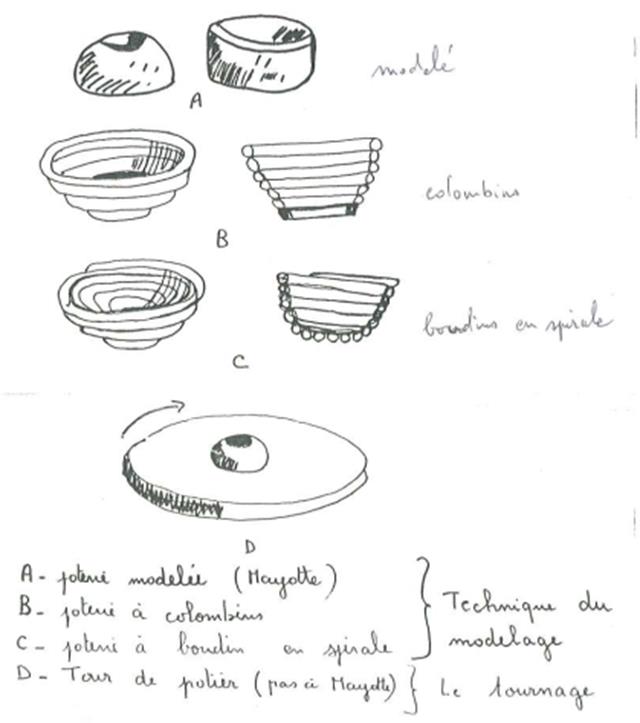 modelé
A
colombins
B
boudins en spirale
C
D
A- poterie modelée (Mayotte)
B- poterie à colombins
C- poterie à boudin en spirale
Technique du
modelage
D- Tour de potier (pas à Mayotte)
Le tournage